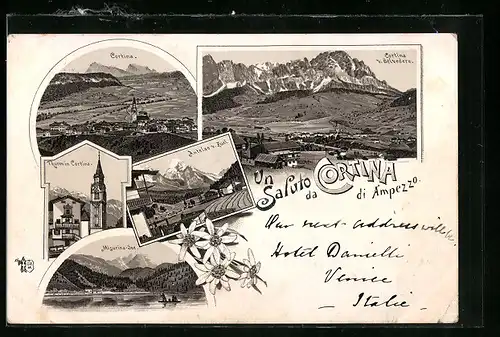 Cortina.
Cortina
v. Belvedere.
Thurm in Cortina.
Antelao v. Zuel.
Misurina-See.
Un
Saluto da CORTINA
di Ampezzo.
Our next address will be
Hotel Danielli
Venice
Italie